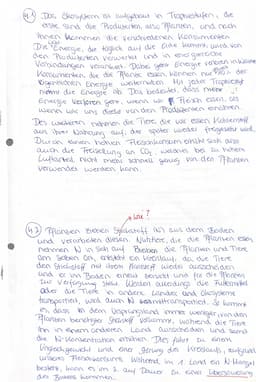 4.1 Das Ökosystem ist aufgebaut in Trophiestufen, die
erste sind die Produzenten, also Pflanzen, und nach
ihnen kommen die verschiedenen Konsumenten
Die Energie, die täglich auf die Erde kommt, wird von
den Produzenten verwertet und in energiereiche
Verbindungen verwandelt. Diese geht
Konsumenten, die die Pflanze essen können nur
mehr die Energie ab. Das bedeutet, dass mehr
Energie verloren geht, wenn wir Fleisch essen, als
wenn wir uns direkt von den Produzenten ernähren.
Des weiteren nehmen die Tiere die wir essen Kohlenstoff
aus ihrer Nahrung auf, der später wieder freigesetzt wird.
Durch einen hohen Fleischkonsum erhöht sich also
auch die Freisetzung an CO₂, welches bei zu hohem
Luftanteil nicht mehr schnell genug von den Pflanzen
verwendet werden kann.
wie?
4.2 Pflanzen nehmen Stickstoff aus dem Boden
und verarbeiten diesen. Nutztiere, die die Pflanzen essen,
nehmen N in sich auf. Bleiben die Pflanzen und Tiere
am selben Ort, entsteht ein Kreislauf, da die Tiere
den Stickstoff mit ihrem wieder ausscheiden
und er im Boden erneut benutzt und für die Pflanzen
zur Verfügung steht. Werden allerdings die Futtermittel
oder die Tiere in andere Länder und Ökosysteme
transportiert, wird auch N mittransportiert. So kommt
es, dass in dem Ursprungsland immer weniger von den
Pflanzen benötigter Stickstoff vorkommt, während die Tiere
ihn in einem anderen Land ausscheiden und somit
die N-Konzentration erhöhen. Dies führt zu einem
Ungleichgewicht und einer Störung des Kreislaufs, aufgrund
unseres Fleischkonsums. Während im 1. Land ein N-Mangel
besteht, kann es im 2. auf Dauer zu einer Übersäuerung
des Bodens kommen.